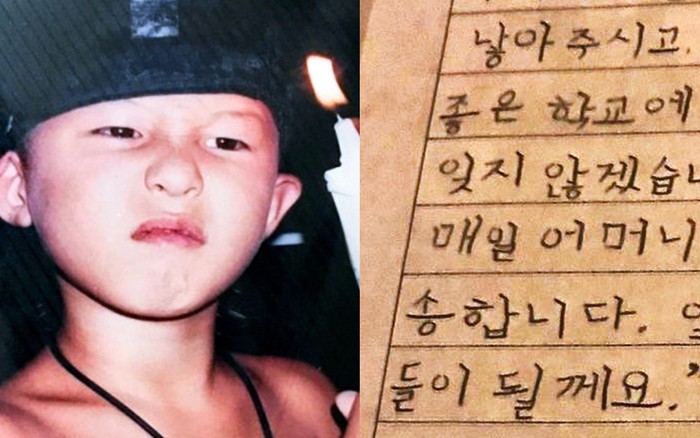 낳아 주시고,
좋은 학교에
잊지 않겠습
매일 어머니
송합니다.
들이 될께요."